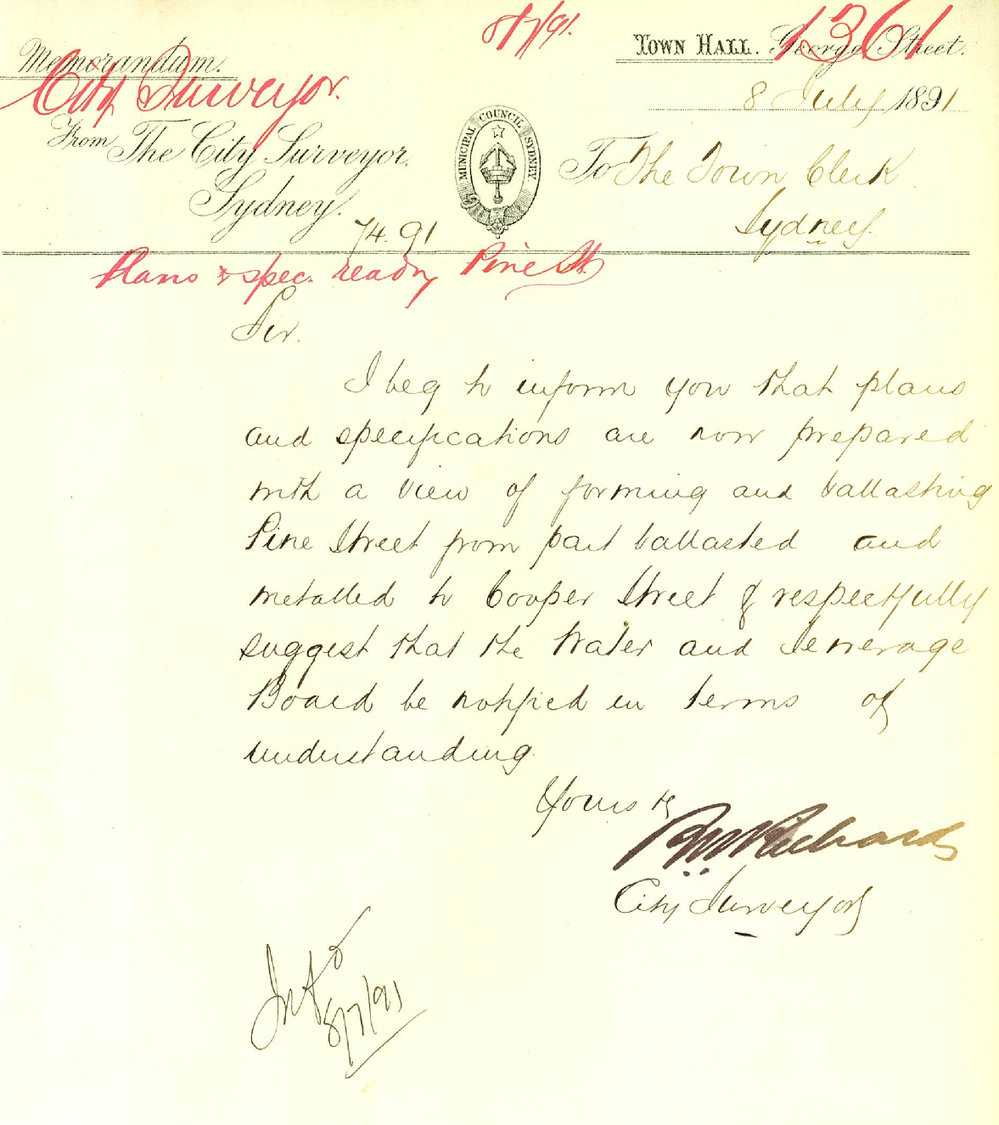 8/7/91.
1361
Memorandum.
TOWN HALL. George Street.
City Surveyor.
8 July 1891
From The City Surveyor,
Sydney.
MUNICIPAL COUNCIL SYDNEY
To The Town Clerk
Sydney.
74.91
Plans & spec. ready Pine St.
Sir.
I beg to inform you that plans
and specifications are now prepared
with a view of forming and ballasting
Pine Street from part ballasted and
metalled to Cooper Street & respectfully
suggest that the Water and Sewerage
Board be notified in terms of
understanding.
Yours
Richards
City Surveyor
8/7/91